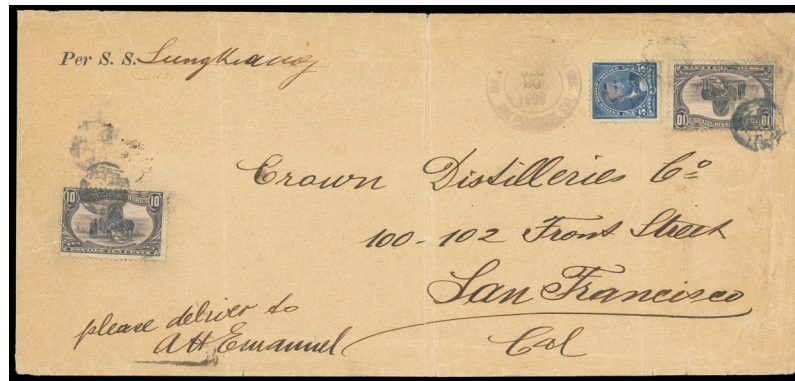 Per S. S. Sungkiang
Crown Distilleries Co
100-102 Front Street
San Francisco
Cal
please deliver to
AH Emanuel
10 10
POSTAGE TEN CENTS
15 15
10 10